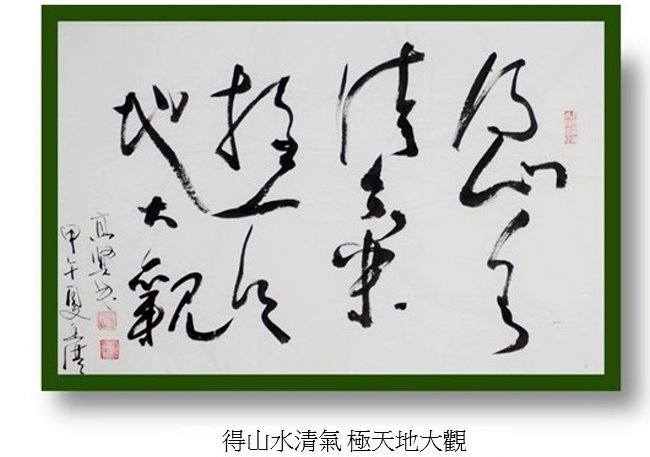 得山水
清氣
極天
地大觀
高賢書
甲午夏
得山水清氣 極天地大觀